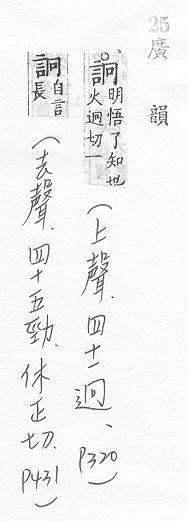 25廣韻
詗明悟了知也火迥切一(上聲、四十一迥、P320)
詗自言長(去聲、四十五勁、休正切、P431)